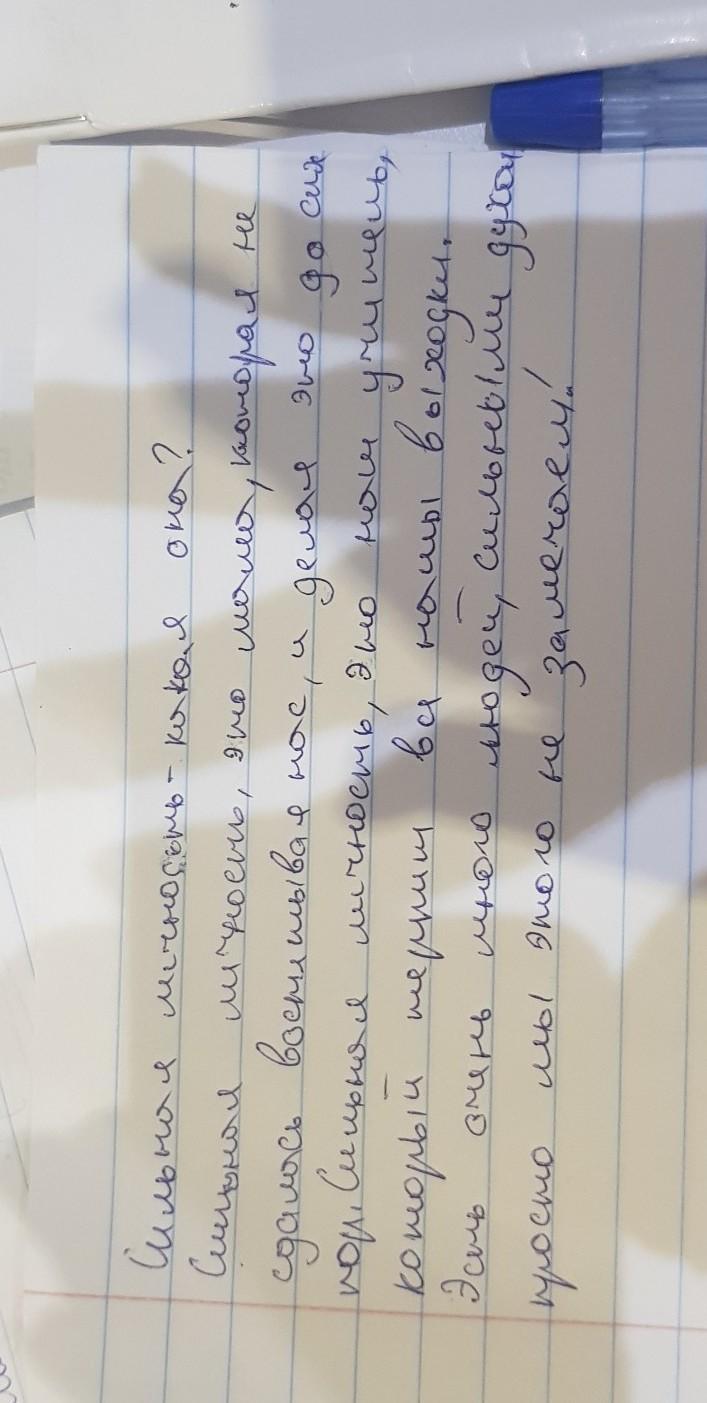 Сильная личность - какая она?
Сильная личность, это мама, которая не
сдалась воспитывая нас, и делая это до сих
пор. Сильная личность, это наш учитель,
который терпит вся нашы выходки.
Эсть очень много людей, сильными духом,
просто мы этого не замечаем!